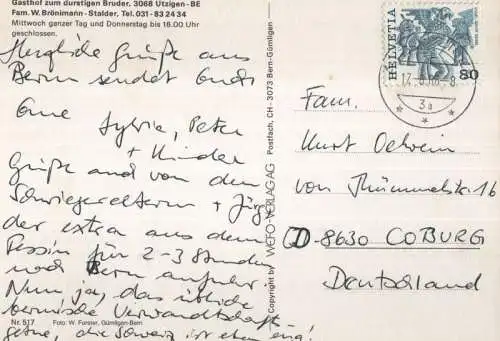 Gasthof zum durstigen Bruder, 3068 Utzigen - BE
Fam. W. Brönimann - Stalder, Tel. 031 - 83 24 34
Mittwoch ganzer Tag und Donnerstag bis 16.00 Uhr
geschlossen.
Herzliche Grüße aus
Bern sendet Euch
Eure
Sylvia, Peter
+ Kinder
Grüße auch von den
Schwiegereltern + Jürg
der extra aus dem
Tessin für 2-3 Stunden
nach Bern anfuhr.
Nun ja, das übliche
bernische Verwandtschafts
die Schweiz ist eben eng!
Nr. 517
Foto: W. Forster, Gümligen-Bern
Copyright by WEFO-VERLAG AG Postfach, CH - 3073 Bern-Gümligen
HELVETIA
80
3a
Fam.
Kurt Oehrl
von Thümmelstr. 16
D-8630 COBURG
Deutschland